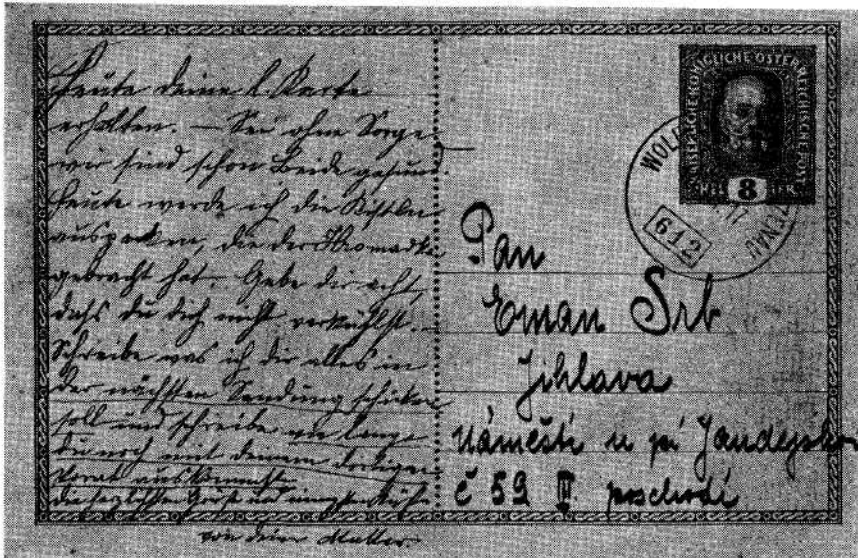 Heute deine l. Karte
erhalten. – Sei ohne Sorge
wir sind schon Beide gesund.
Heute werde ich die Kistln
auspacken, die der Hromadka
gebracht hat. Gebe dir acht,
dahs du dich nicht verkühlst. –
Schreibe was ich dir alles in
der nächsten Sendung schicken
soll und schreibe wie lang
du noch mit deinem dortigen
Vorat auskommst.
die herzlichsten Grüße und innigsten Küße
von deiner Mutter.
KAISERLICHE KÖNIGLICHE ÖSTERREICHISCHE POST
8
WOL
17
612
Pan
Eman Srb
Jihlava
Náměstí u pí
č 59 II. poschodí